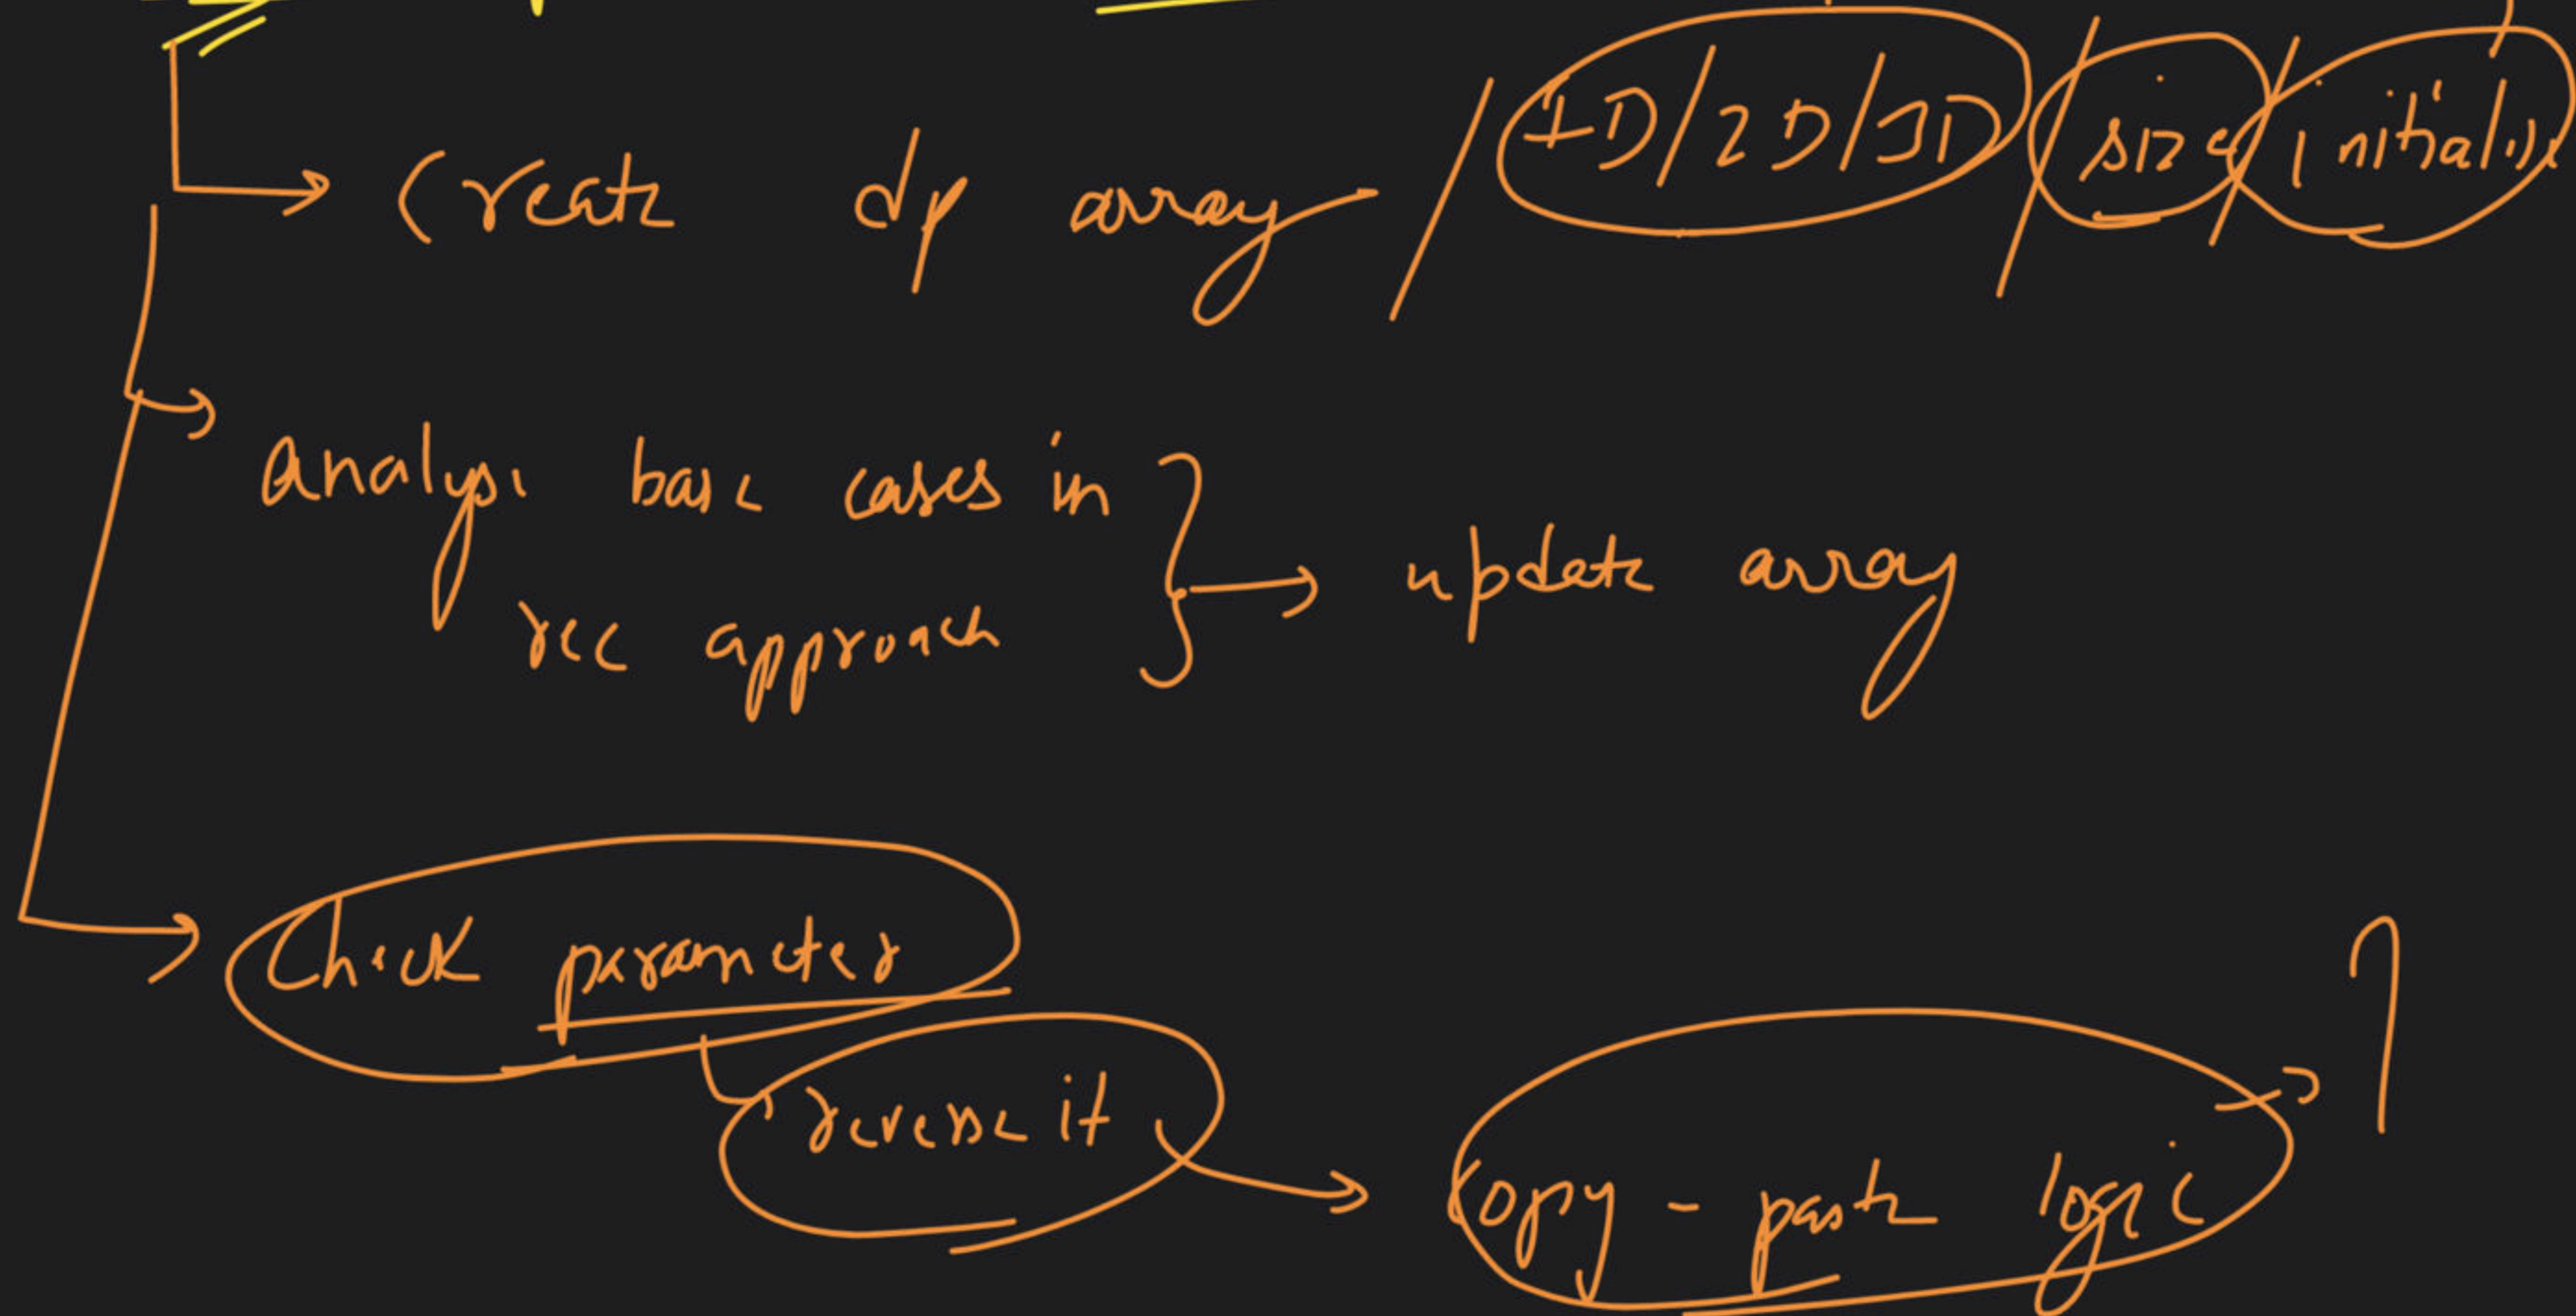 Create dp array / 1D/2D/3D / size / initialise
Analyse base cases in
rec approach
update array
Check parameter
reverse it
copy - paste logic